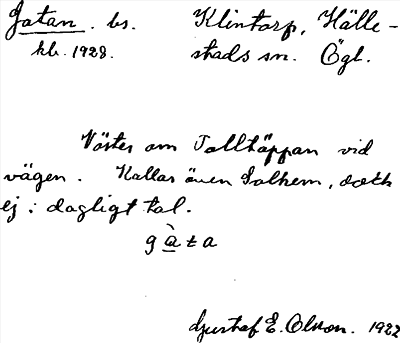 Gatan. bs. Klintorp, Hälle-
kb. 1928. stads sn. Ögl.
Väster om Talltäppan vid
vägen. Kallas även Solhem, dock
ej i dagligt tal.
gàta
Gustaf E. Olson. 1922